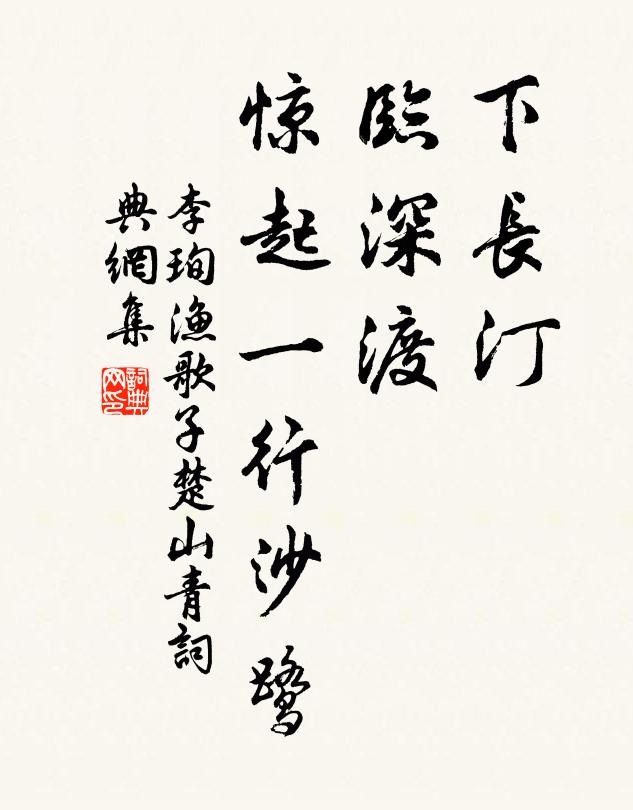 下長汀
臨深渡
惊起一行沙鷺
李珣漁歌子楚山青詞
典網集
詞典网印